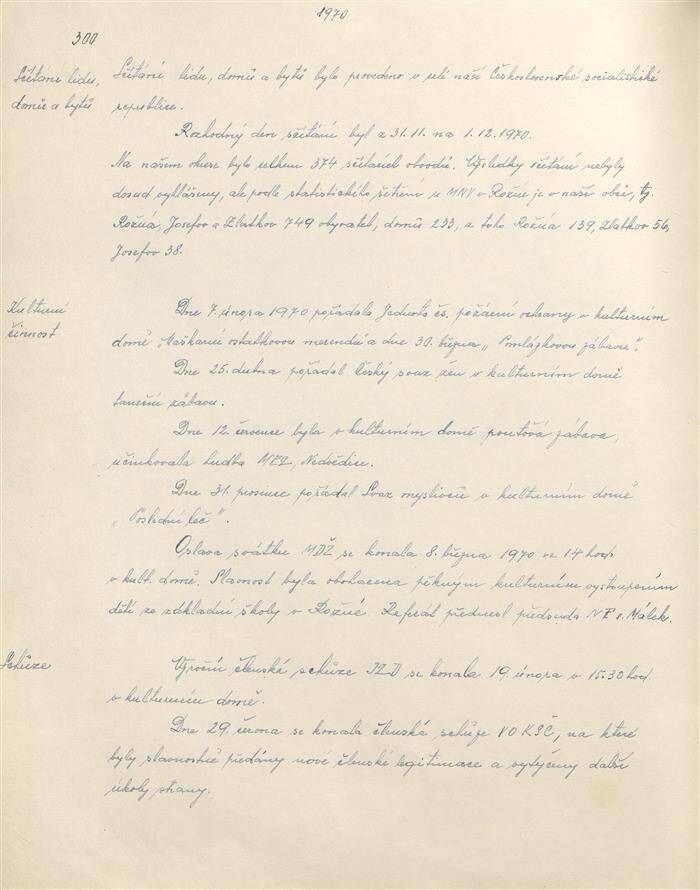 1970
300
Sčítání lidu, domů a bytů
Sčítání lidu, domů a bytů bylo provedeno v celé naší Československé socialistické
republice.
Rozhodný den sčítání byl z 31.11. na 1.12.1970.
Na našem okrese bylo celkem 374 sčítacích obvodů. Výsledky sčítání nebyly
dosud vyhlášeny, ale podle statistického šetření u MNV v Rožné je v naší obci, tj.
Rožná, Josefov a Zlatkov 749 obyvatel, domů 233, z toho Rožná 139, Zlatkov 56,
Josefov 38.
Kulturní činnost
Dne 7. února 1970 pořádala Jednota čs. požární ochrany v kulturním
domě „Maškarní ostatkovou merendu" a dne 30. března „Pomlázkovou zábavu".
Dne 25. dubna pořádal Český svaz žen v kulturním domě
taneční zábavu.
Dne 12. července byla v kulturním domě pouťová zábava,
účinkovala hudba MEZ, Nedvědice.
Dne 31. prosince pořádal Svaz myslivců v kulturním domě
„Poslední leč".
Oslava svátku MDŽ se konala 8. března 1970 ve 14 hod.
v kult. domě. Slavnost byla obohacena pěkným kulturním vystoupením
dětí ze základní školy v Rožné. Referát přednesl předseda NF s. Málek.
Schůze
Výroční členská schůze JZD se konala 19. února v 15.30 hod.
v kulturním domě.
Dne 29. června se konala členská schůze VO KSČ, na které
byly slavnostně předány nové členské legitimace a vytýčeny další
úkoly strany.